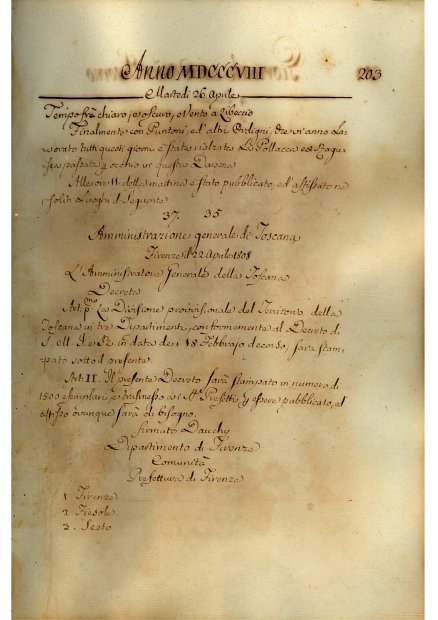 Anno MDCCCVIII 203
Martedì 26 Aprile
Tempo frà chiaro, e oscuro, e Vento a Libeccio
Finalmente con Puntoni, ed' altri Ordigni, che vi anno La-
vorato tutti questi giorni è stata rialzata La Pollacca
passata in questa Darsena
Alle ore 11. della mattina è stato pubblicato, ed' affissato ne
soliti Luoghi il seguente
37. 35
Amministrazione generale di Toscana
Firenze li 22 Aprile 1808
L'Amministratore Generale della Toscana
Decreta
Art: pmo La Divisione provvisionale del Territorio della
Toscana in tre Dipartimenti, conformemente al Decreto di
S. e R. in data dei 18 Febbrajo decorso, sarà stam-
pato sotto il presente.
Art: II. Il presente Decreto sarà stampato in numero di
1500 esemplari, e trasmesso ai Prefetti per essere pubblicato, ed
affisso ovunque sarà di bisogno.
firmato Dauchy
Dipartimento di Firenze
Comunità
Prefettura di Firenze
1 Firenze
2 Fiesole
3. Sesto